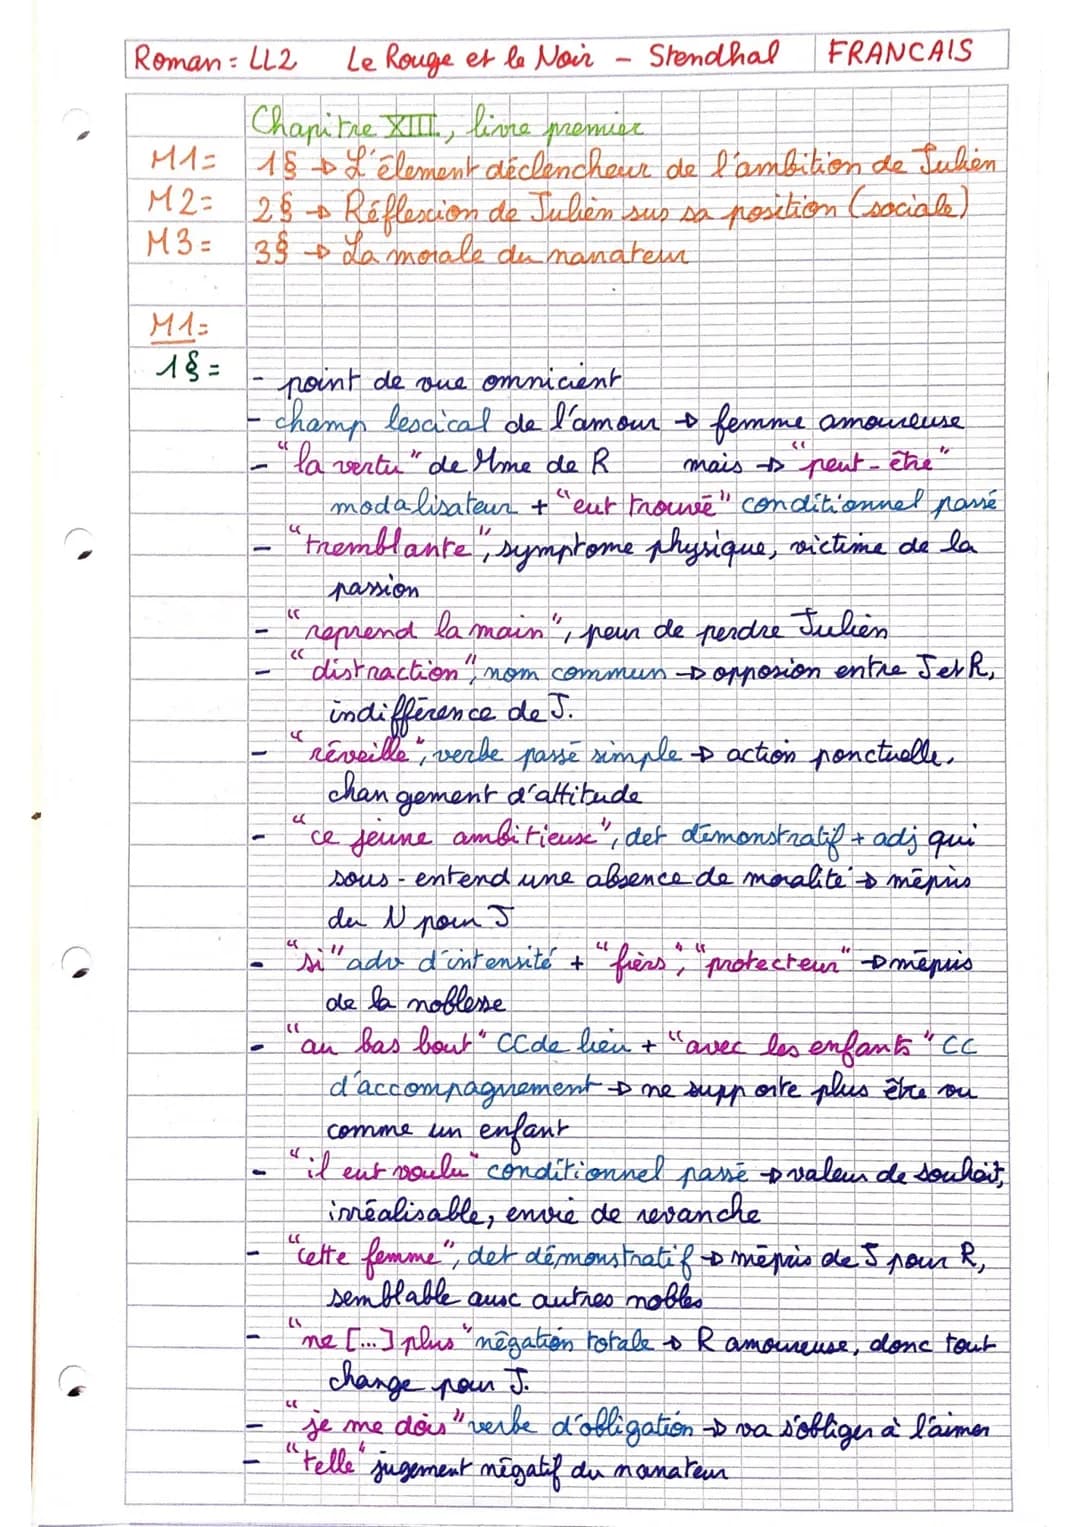 Roman = LL2 Le Rouge et le Noir - Stendhal FRANCAIS
Chapitre XIII, livre premier
M1= 1§ → L'élement déclencheur de l'ambition de Julien
M2= 2§ → Réflexion de Julien sur sa position (sociale)
M3= 3§ → La morale du narrateur
M1=
1§=
- point de vue omnicient
- champ lexical de l'amour → femme amoureuse
- "la vertu" de Mme de R mais → "peut-être"
modalisateur + "eut trouvé" conditionnel passé
- "tremblante", symptome physique, victime de la
passion
- "reprend la main", peur de perdre Julien
- "distraction", nom commun → opposion entre J et R,
indifférence de J.
- "réveille", verbe passé simple → action ponctuelle,
changement d'attitude
- "ce jeune ambitieux", det démonstratif + adj qui
sous-entend une absence de moralité → mépris
du N pour J
- "si" adv d'intensité + "fiers", "protecteur" → mépris
de la noblesse
- "au bas bout" CC de lieu + "avec les enfants" CC
d'accompagnement → ne supporte plus être vu
comme un enfant
- "il eut voulu" conditionnel passé → valeur de souhait,
irréalisable, envie de revanche
- "cette femme", det démonstratif → mépris de J pour R,
semblable aux autres nobles
- "ne [...] plus" négation totale → R amoureuse, donc tout
change pour J.
- "je me dois" verbe d'obligation → va s'obliger à l'aimer
- "telle" jugement négatif du narrateur